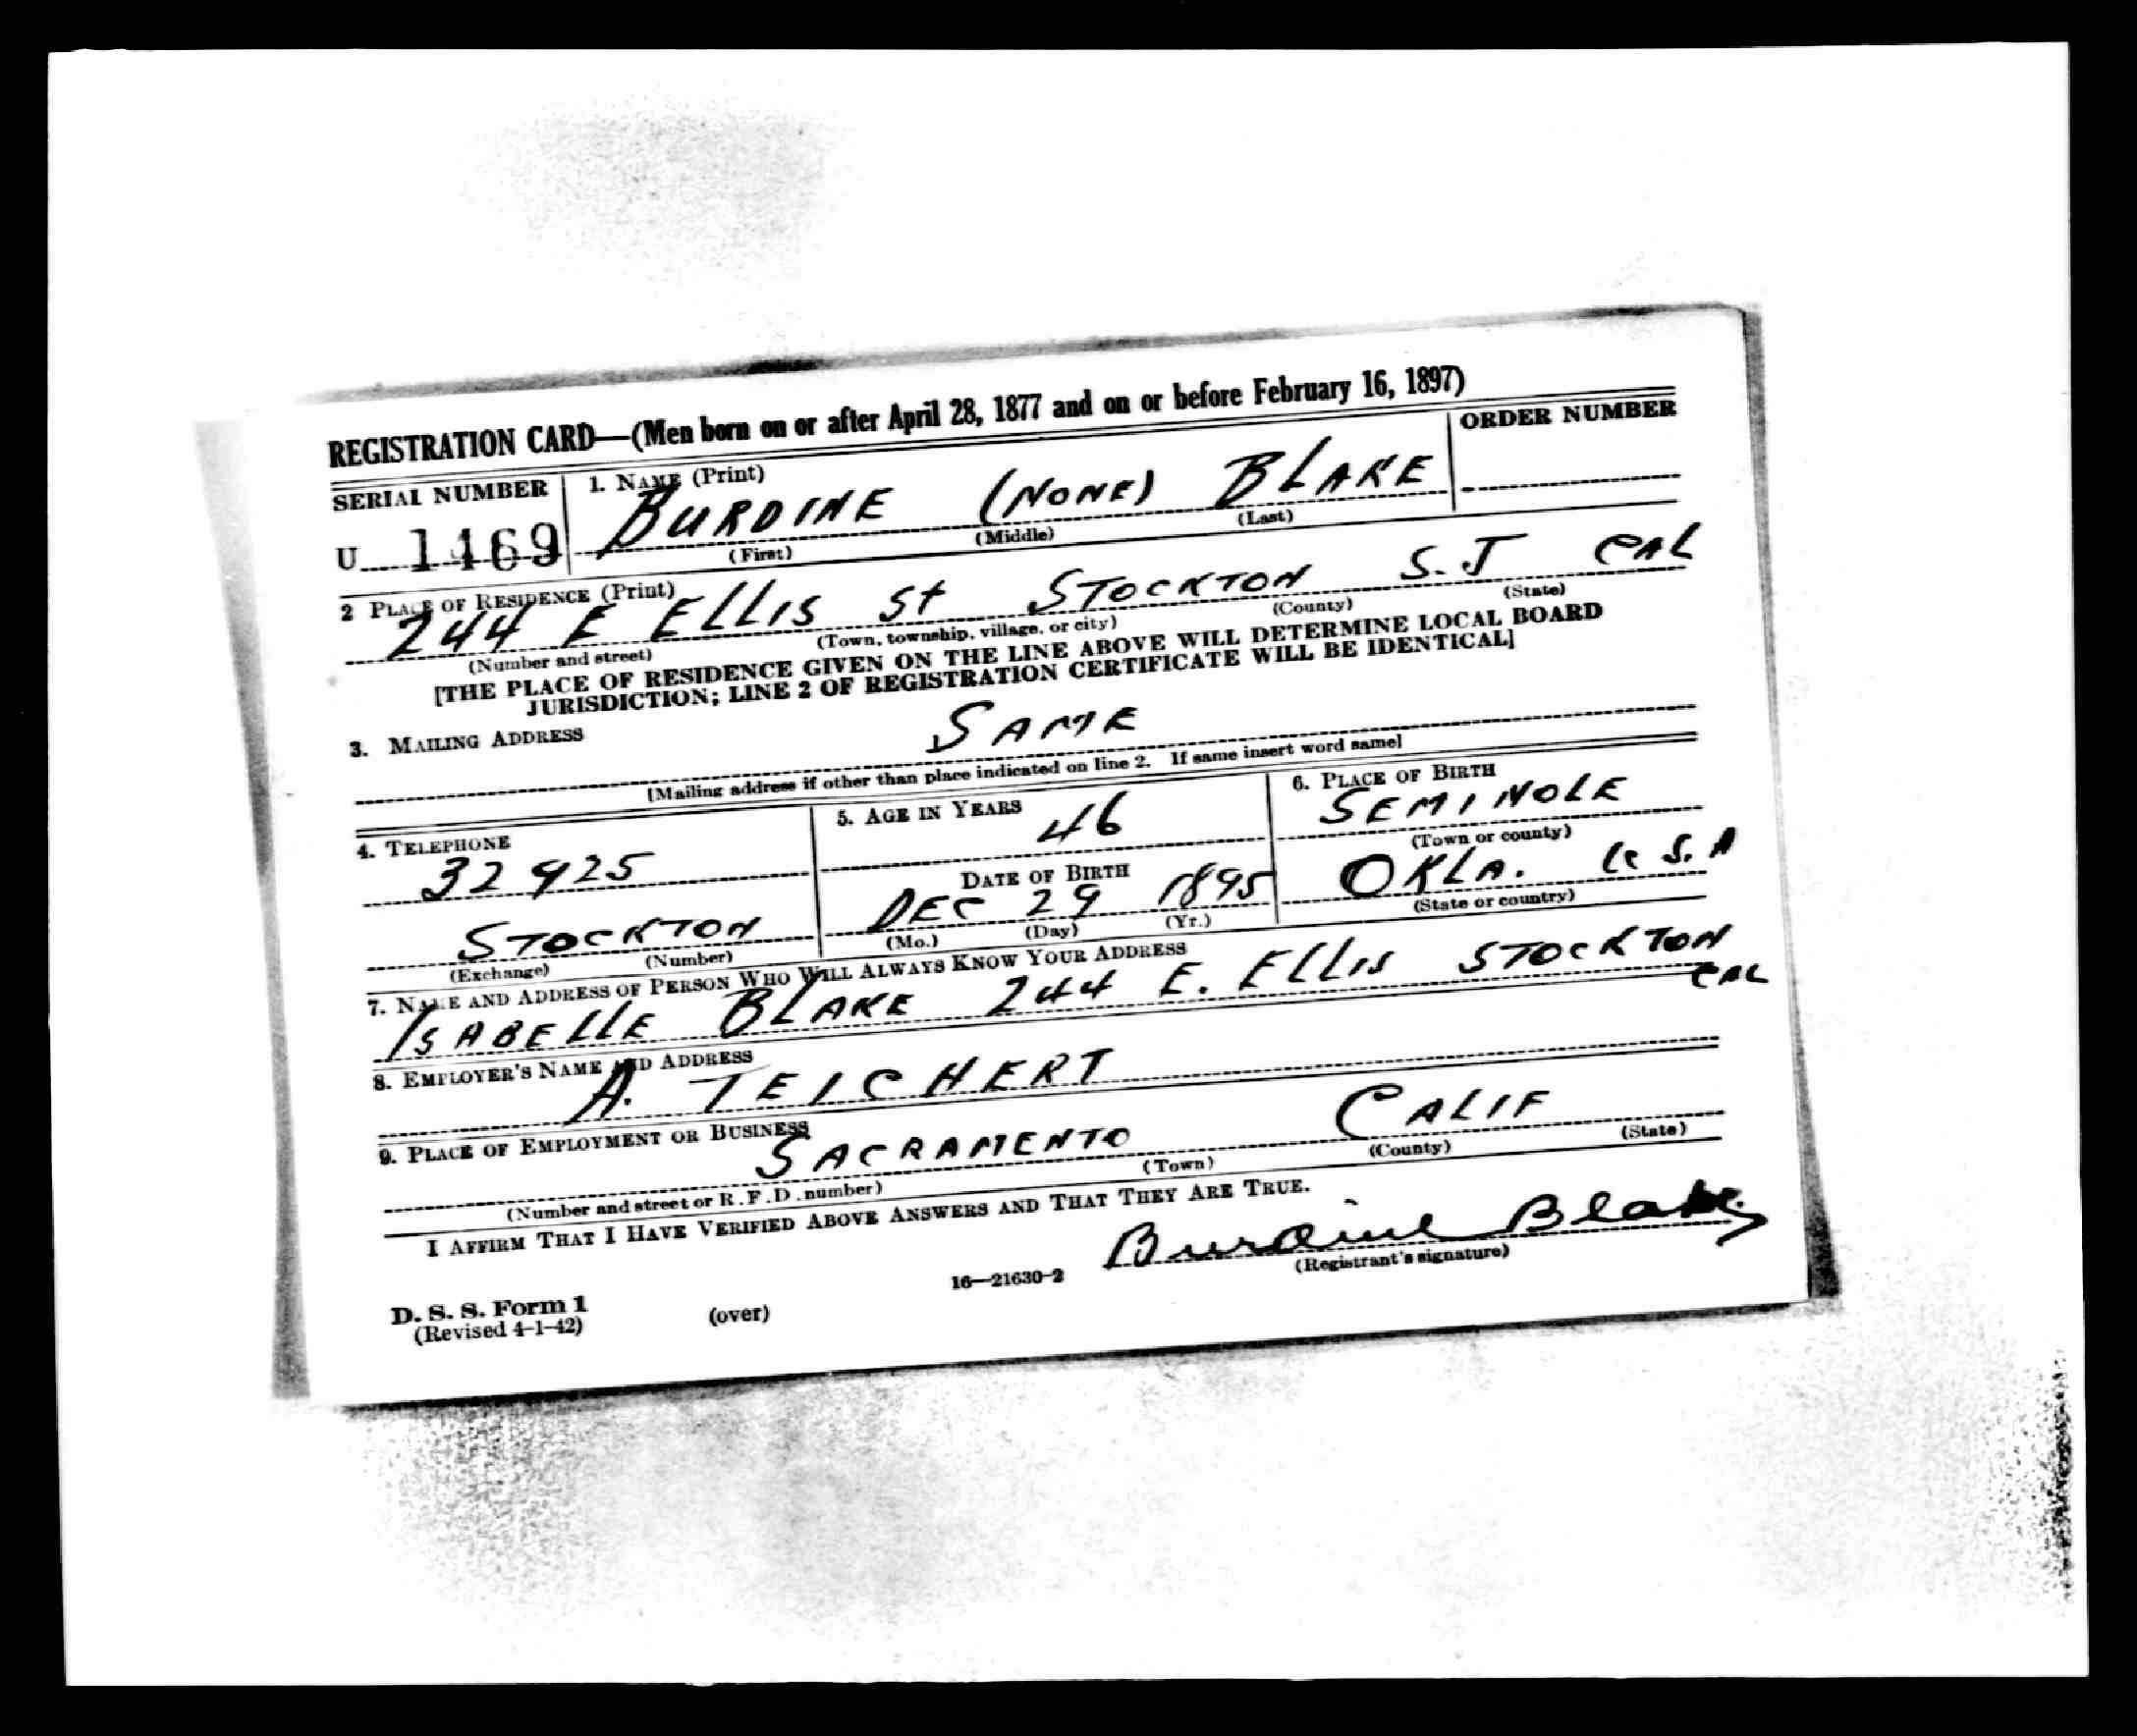 REGISTRATION CARD—(Men born on or after April 28, 1877 and on or before February 16, 1897)
SERIAL NUMBER
1. NAME (Print)
ORDER NUMBER
U 1469
BURDINE (NONE) BLAKE
(First) (Middle) (Last)
2 PLACE OF RESIDENCE (Print)
244 E ELLIS St STOCKTON S.J CAL
(Number and street) (Town, township, village, or city) (County) (State)
[THE PLACE OF RESIDENCE GIVEN ON THE LINE ABOVE WILL DETERMINE LOCAL BOARD
JURISDICTION; LINE 2 OF REGISTRATION CERTIFICATE WILL BE IDENTICAL]
3. MAILING ADDRESS
SAME
[Mailing address if other than place indicated on line 2. If same insert word same]
4. TELEPHONE
32925
STOCKTON
(Exchange) (Number)
5. AGE IN YEARS
46
DATE OF BIRTH
DEC 29 1895
(Mo.) (Day) (Yr.)
6. PLACE OF BIRTH
SEMINOLE
(Town or county)
OKLA. U S. A
(State or country)
7. NAME AND ADDRESS OF PERSON WHO WILL ALWAYS KNOW YOUR ADDRESS
ISABELLE BLAKE 244 E. ELLIS STOCKTON
CAL
8. EMPLOYER'S NAME AND ADDRESS
A. TEICHERT
9. PLACE OF EMPLOYMENT OR BUSINESS
SACRAMENTO CALIF
(Number and street or R.F.D. number) (Town) (County) (State)
I AFFIRM THAT I HAVE VERIFIED ABOVE ANSWERS AND THAT THEY ARE TRUE.
Burdine Blake
(Registrant's signature)
D. S. S. Form 1
(Revised 4-1-42)
(over)
16—21630-2